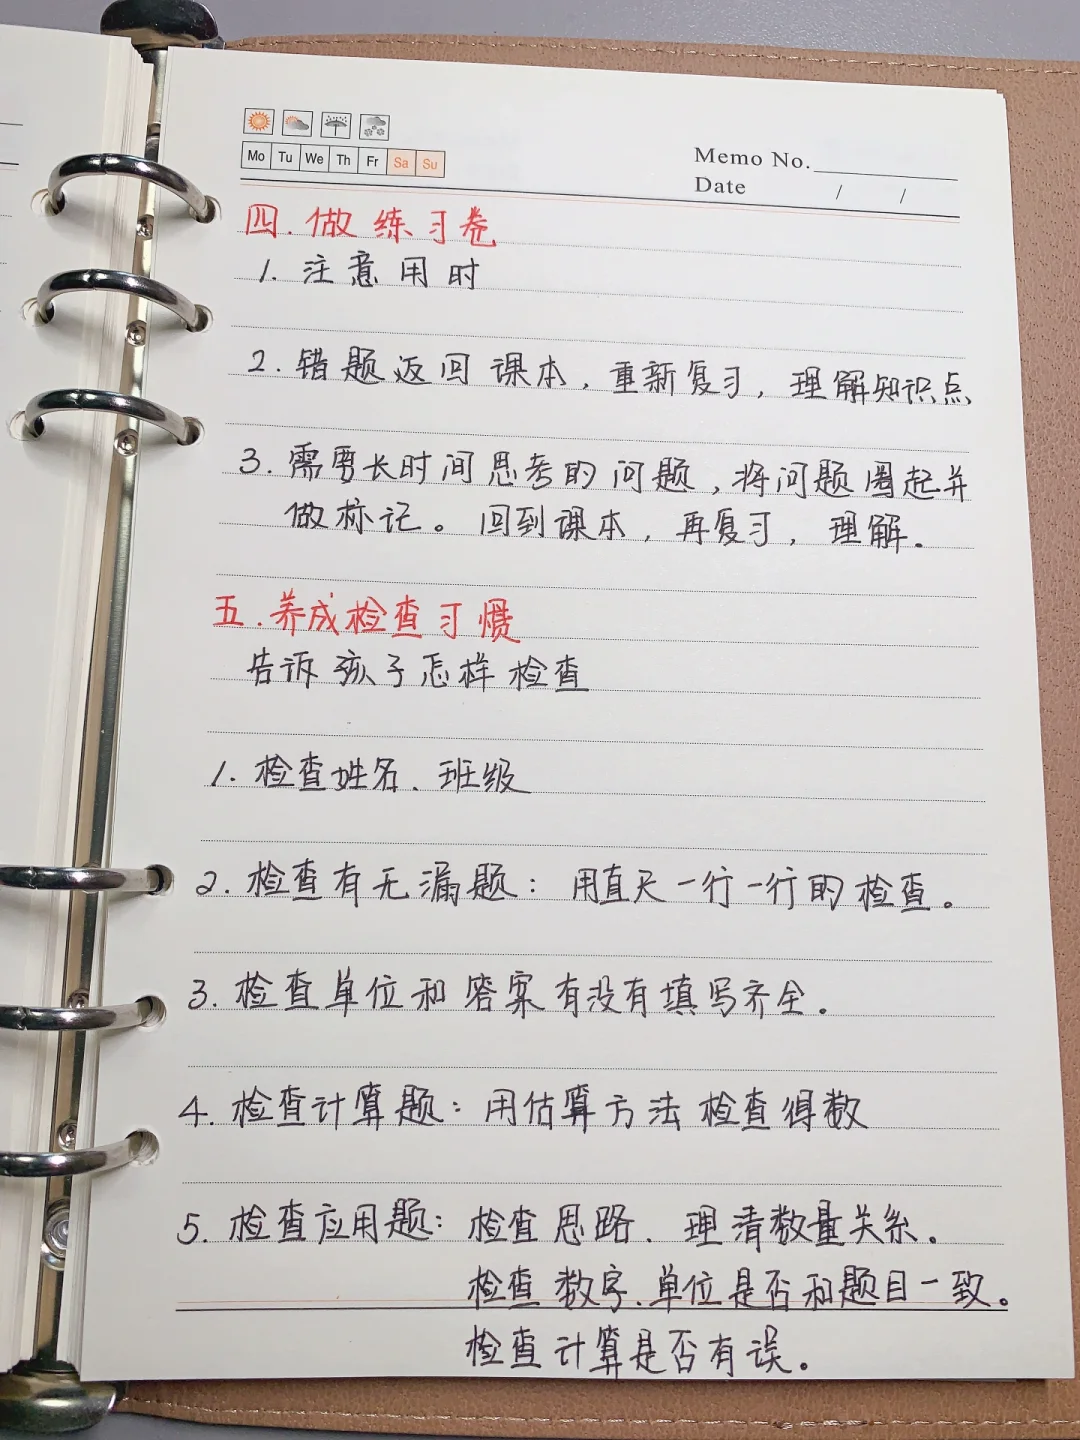 Mo Tu We Th Fr Sa Su
Memo No.
Date / /
四.做练习卷
1.注意用时
2.错题返回课本,重新复习,理解知识点
3.需要长时间思考的问题,将问题圈起并
做标记。回到课本,再复习,理解.
五.养成检查习惯
告诉孩子怎样检查
1.检查姓名、班级
2.检查有无漏题:用直尺一行一行的检查。
3.检查单位和答案有没有填写齐全.
4.检查计算题:用估算方法检查得数
5.检查应用题:检查思路、理清数量关系.
检查数字、单位是否和题目一致。
检查计算是否有误。